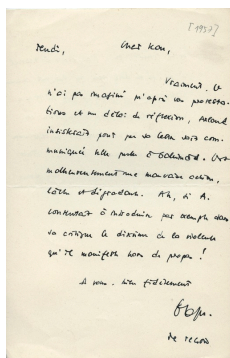 [1951?]
Lundi, Cher ,
Vraiment, je
n'ai pas imaginé qu'après vos protesta-
tions et un délai de réflexion,
insisterait pour que sa lettre soit com-
muniquée telle quelle à . C'est
malheureusement une mauvaise action,
lâche et dégradante. Ah, si A.
consentait à introduire par exemple dans
sa critique le dixième de la violence
qu'il manifeste hors de propos !
A vous bien fidèlement